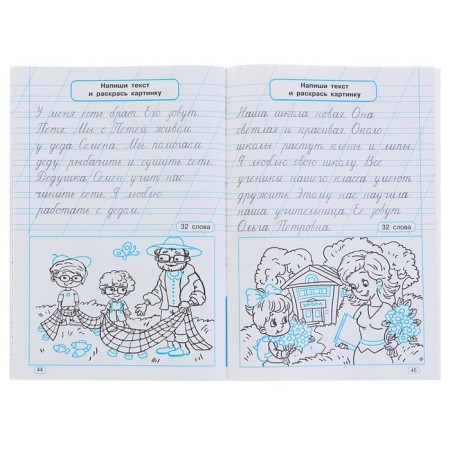 Напиши текст
и раскрась картинку
У меня есть брат. Его зовут
Петя. Мы с Петей живём
у деда Семёна. Мы помогаем
деду рыбачить и сушить сеть.
Дедушка Семён учит нас
чинить сеть. Я люблю
работать с дедом.
32 слова
44
Напиши текст
и раскрась картинку
Наша школа новая. Она
светлая и красивая. Около
школы растут клёны и липы.
Я люблю свою школу. Все
ученики нашего класса умеют
дружить. Этому нас научила
наша учительница. Её зовут
Ольга Петровна.
32 слова
школа
45